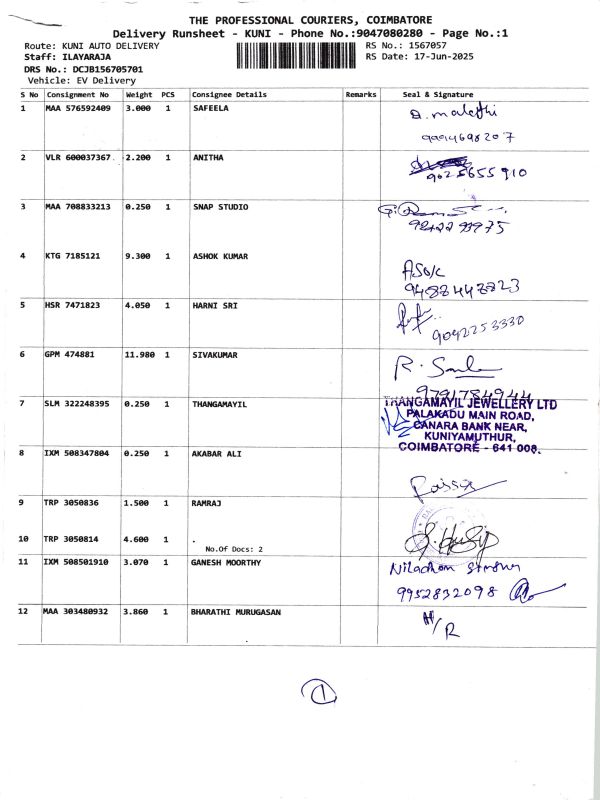 THE PROFESSIONAL COURIERS, COIMBATORE
Delivery Runsheet - KUNI - Phone No.:9047080280 - Page No.:1
Route: KUNI AUTO DELIVERY
RS No.: 1567057
Staff: ILAYARAJA
RS Date: 17-Jun-2025
DRS No.: DCJB156705701
Vehicle: EV Delivery
S No Consignment No Weight PCS Consignee Details Remarks Seal & Signature
1 MAA 576592409 3.000 1 SAFEELA
2 VLR 600037367. 2.200 1 ANITHA
9025655910
3 MAA 708833213 0.250 1 SNAP STUDIO
4 KTG 7185121 9.300 1 ASHOK KUMAR
ASOK
9488447823
5 HSR 7471823 4.050 1 HARNI SRI
9092253330
6 GPM 474881 11.980 1 SIVAKUMAR
9791784944
7 SLM 322248395 0.250 1 THANGAMAYIL
THANGAMAYIL JEWELLERY LTD
PALAKADU MAIN ROAD,
CANARA BANK NEAR,
KUNIYAMUTHUR,
COIMBATORE - 641 008.
8 IXM 508347804 0.250 1 AKABAR ALI
9 TRP 3050836 1.500 1 RAMRAJ
10 TRP 3050814 4.600 1 .
No.Of Docs: 2
11 IXM 508501910 3.070 1 GANESH MOORTHY
9952832098
12 MAA 303480932 3.860 1 BHARATHI MURUGASAN
H/R
1